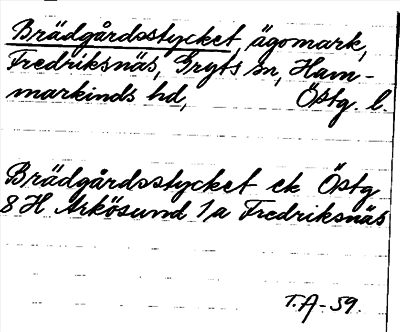 Brädgårdsstycket, ägomark,
Fredriksnäs, Gryts sn, Ham-
markinds hd, Östg. l.
Brädgårdsstycket ek Östg
8 H Arkösund 1a Fredriksnäs
T.A-59.